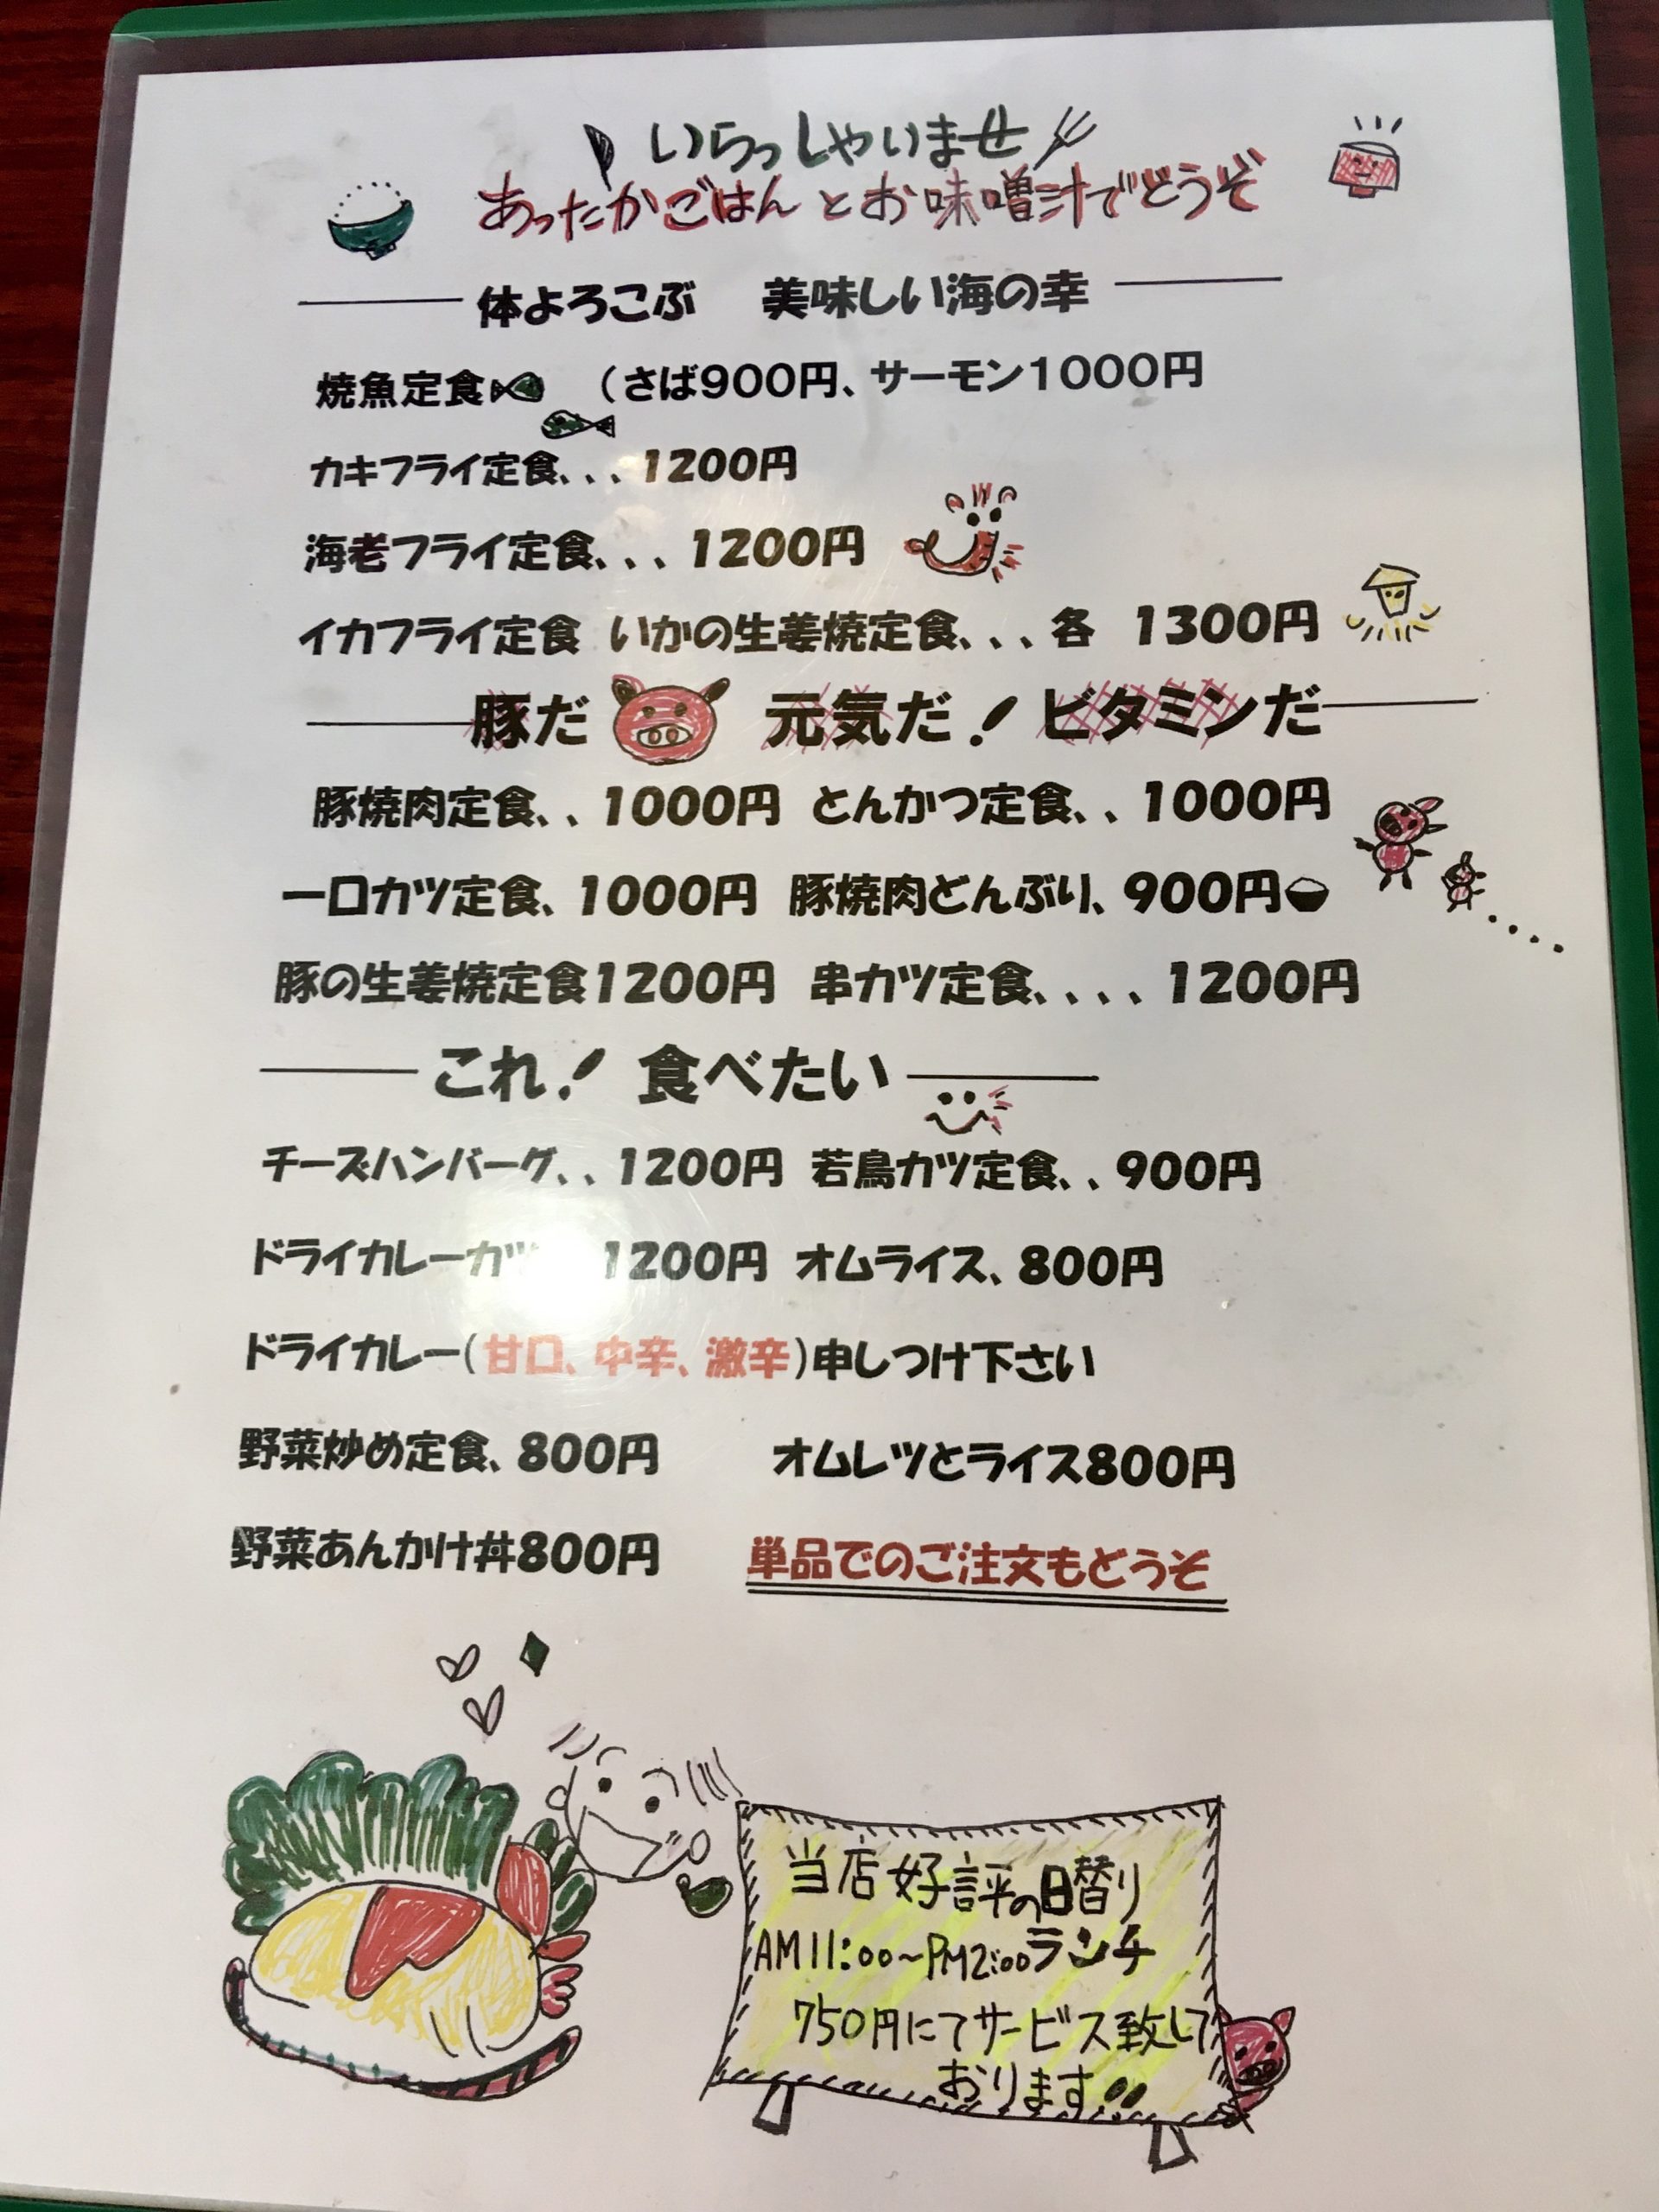 いらっしゃいませ
あったかごはんとお味噌汁でどうぞ
体よろこぶ 美味しい海の幸
焼魚定食 (さば900円、サーモン1000円
カキフライ定食、、、1200円
海老フライ定食、、、1200円
イカフライ定食 いかの生姜焼定食、、、各 1300円
豚だ 元気だ! ビタミンだ
豚焼肉定食、、1000円 とんかつ定食、、1000円
一口カツ定食、1000円 豚焼肉どんぶり、900円
豚の生姜焼定食1200円 串カツ定食、、、、1200円
これ! 食べたい
チーズハンバーグ、、1200円 若鳥カツ定食、、900円
ドライカレーカツ 1200円 オムライス、800円
ドライカレー(甘口、中辛、激辛)申しつけ下さい
野菜炒め定食、800円 オムレツとライス800円
野菜あんかけ丼800円 単品でのご注文もどうぞ
当店好評の日替り
AM11:00~PM2:00ランチ
750円にてサービス致して
おります!!